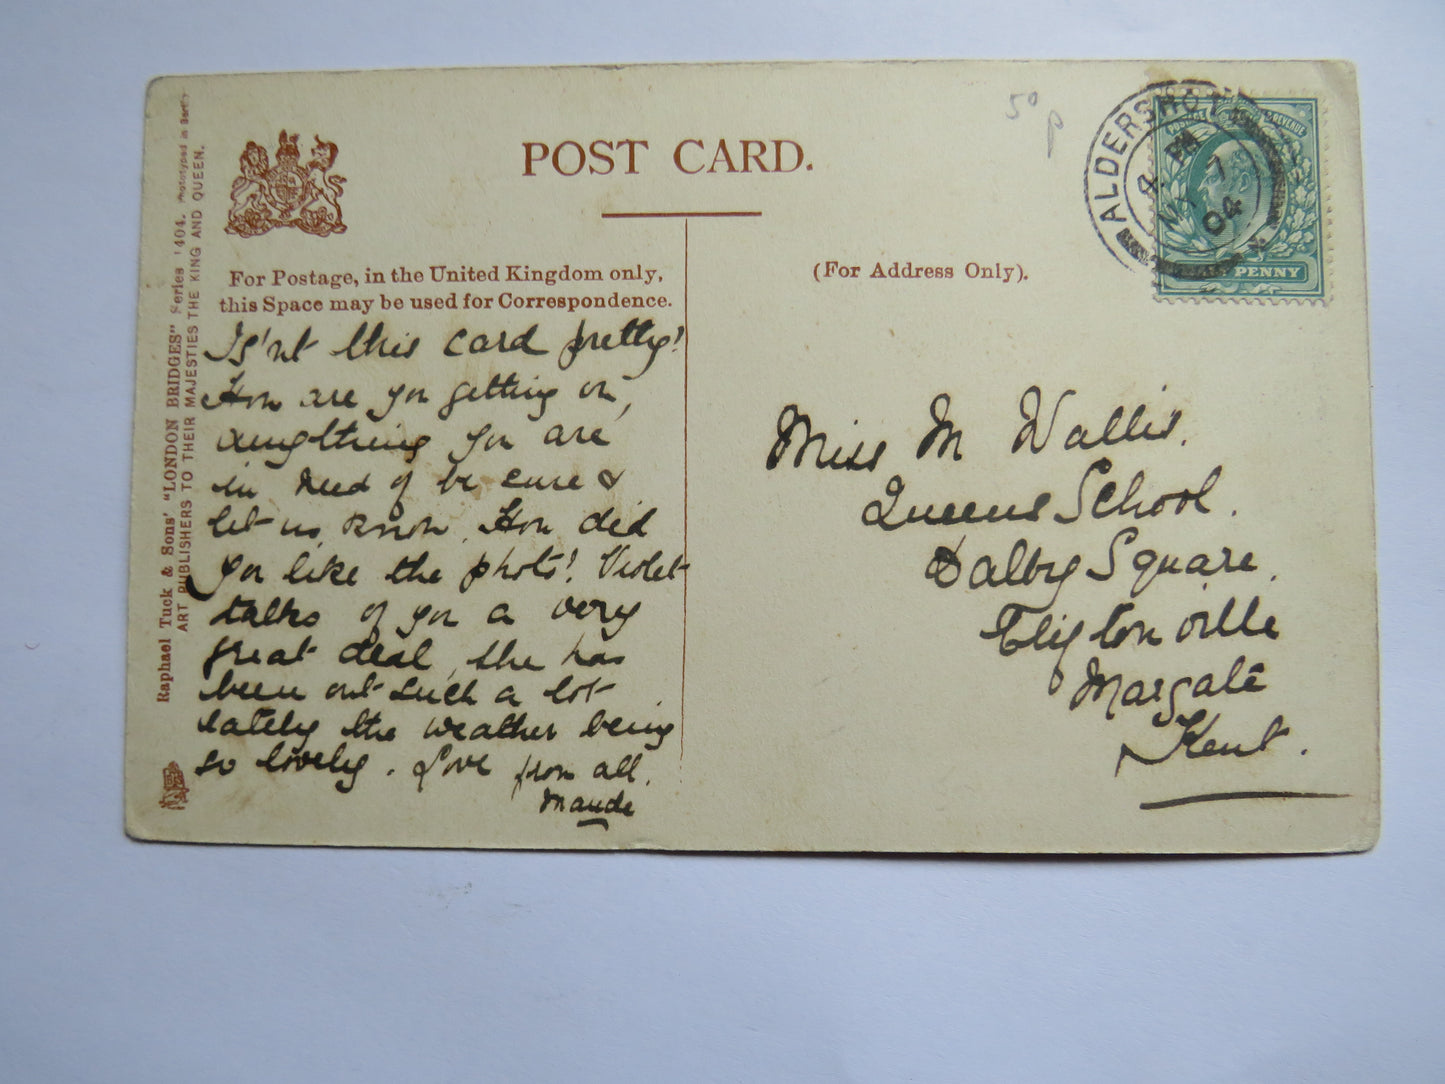 POST CARD.
50
p
ALDERSHOT
4. PM
MY 7
04
POSTAGE REVENUE
PENNY
For Postage, in the United Kingdom only,
this Space may be used for Correspondence.
(For Address Only).
Raphael Tuck & Sons' "LONDON BRIDGES" Series 1404. Phototyped in Berlin
ART PUBLISHERS TO THEIR MAJESTIES THE KING AND QUEEN.
Is'nt this card pretty!
How are you getting on,
anything you are
in need of be sure &
let us know. How did
you like the photo! Violet
talks of you a very
great deal, she has
been out such a lot
lately the weather being
so lovely. Love from all.
Maude
Miss M Wallis.
Queens School.
Dalby Square.
Cliftonville
Margate
Kent.